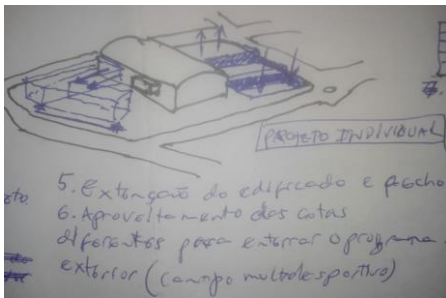 PROJETO INDIVIDUAL
5. Extensão do edificado e fecho
6. Aproveitamento das cotas
diferentes para enterrar o programa
exterior (campo multidesportivo)